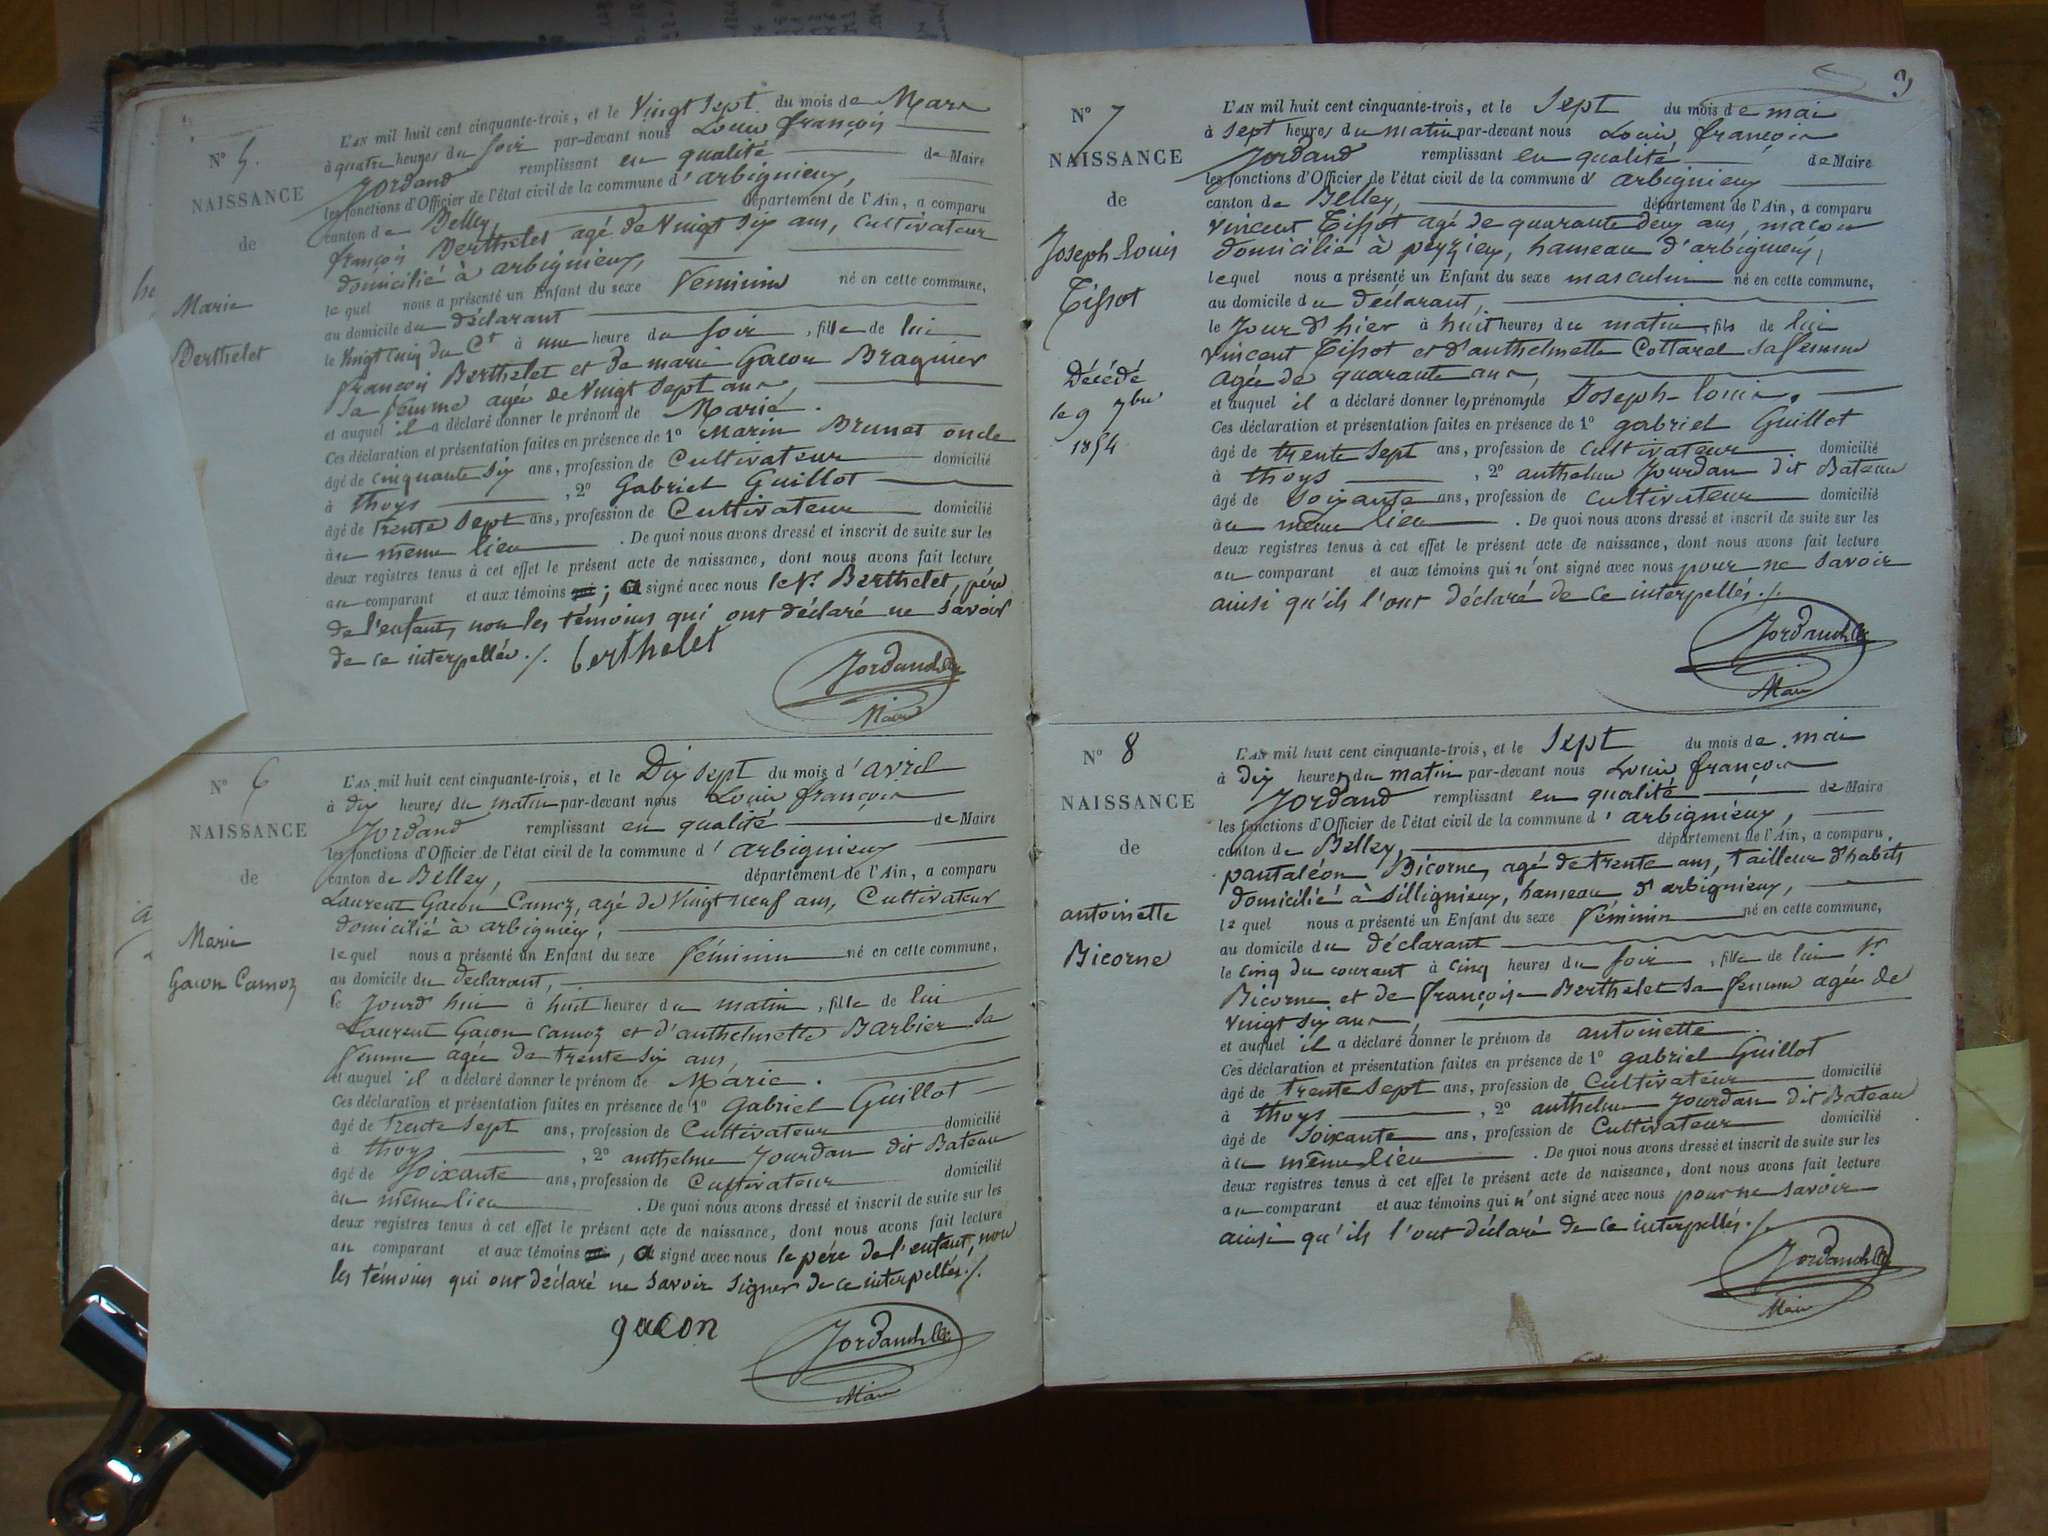 N° 5.
NAISSANCE
de
Marie
Berthelet
L'AN mil huit cent cinquante-trois, et le Vingt Sept du mois de Mars
à quatre heures du Soir par-devant nous Louis françois
Jordand remplissant en qualité de Maire
les fonctions d'Officier de l'état civil de la commune d'arbignieux,
canton de Belley, département de l'Ain, a comparu
françois Berthelet agé de Vingt Six ans, Cultivateur
domicilié à arbignieux,
lequel nous a présenté un Enfant du sexe Féminin né en cette commune,
au domicile du déclarant
le Vingt cinq du Ct à une heure du Soir, fille de lui
françois Berthelet et de marie Gacon Braguier
Sa femme agée de Vingt Sept ans,
et auquel il a déclaré donner le prénom de Marie.
Ces déclaration et présentation faites en présence de 1° Marin Brunet oncle
âgé de cinquante six ans, profession de Cultivateur domicilié
à thoys, 2° Gabriel Guillot
âgé de trente Sept ans, profession de Cultivateur domicilié
au même lieu. De quoi nous avons dressé et inscrit de suite sur les
deux registres tenus à cet effet le présent acte de naissance, dont nous avons fait lecture
au comparant et aux témoins ; a signé avec nous le Sr. Berthelet, père
de l'enfant, non les témoins qui ont déclaré ne Savoir
de ce interpellés ./. berthelet
Jordand
Maire
N° 6
NAISSANCE
de
Marie
Gacon Camoz
L'AN mil huit cent cinquante-trois, et le Dix Sept du mois d'avril
à dix heures du matin par-devant nous Louis françois
Jordand remplissant en qualité de Maire
les fonctions d'Officier de l'état civil de la commune d'arbignieux
canton de Belley, département de l'Ain, a comparu
Laurent Gacon Camoz, agé de Vingt neuf ans, Cultivateur
domicilié à arbignieux,
lequel nous a présenté un Enfant du sexe féminin né en cette commune,
au domicile du déclarant,
le Jourd'hui à huit heures du matin, fille de lui
Laurent Gacon Camoz et d'anthelmette Barbier Sa
femme agée de trente Six ans,
et auquel il a déclaré donner le prénom de Marie.
Ces déclaration et présentation faites en présence de 1° Gabriel Guillot
âgé de trente Sept ans, profession de Cultivateur domicilié
à thoys, 2° anthelme Jourdan dit Bateau
âgé de Soixante ans, profession de Cultivateur domicilié
au même lieu. De quoi nous avons dressé et inscrit de suite sur les
deux registres tenus à cet effet le présent acte de naissance, dont nous avons fait lecture
au comparant et aux témoins , a signé avec nous le père de l'enfant, non
les témoins qui ont déclaré ne Savoir Signer de ce interpellés ./.
gacon
Jordand
Maire
3
N° 7
NAISSANCE
de
Joseph Louis
Tissot
Décédé
le 9 7bre
1854
L'AN mil huit cent cinquante-trois, et le Sept du mois de mai
à Sept heures du matin par-devant nous Louis françois
Jordand remplissant en qualité de Maire
les fonctions d'Officier de l'état civil de la commune d'arbignieux
canton de Belley, département de l'Ain, a comparu
Vincent Tissot agé de quarante deux ans, maçon
domicilié à peyzieu, hameau d'arbignieu,
lequel nous a présenté un Enfant du sexe masculin né en cette commune,
au domicile du déclarant,
le Jour d'hier à huit heures du matin, fils de lui
Vincent Tissot et d'anthelmette Cottarel Sa femme
agée de quarante ans,
et auquel il a déclaré donner les prénoms de Joseph-Louis.
Ces déclaration et présentation faites en présence de 1° gabriel Guillot
âgé de trente Sept ans, profession de Cultivateur domicilié
à thoys, 2° anthelme Jourdan dit Bateau
âgé de Soixante ans, profession de Cultivateur domicilié
au même lieu. De quoi nous avons dressé et inscrit de suite sur les
deux registres tenus à cet effet le présent acte de naissance, dont nous avons fait lecture
au comparant et aux témoins qui n'ont signé avec nous pour ne Savoir
ainsi qu'ils l'ont déclaré de ce interpellés ./.
Jordand
Maire
N° 8
NAISSANCE
de
antoinette
Bicorne
L'AN mil huit cent cinquante-trois, et le Sept du mois de mai
à dix heures du matin par-devant nous Louis françois
Jordand remplissant en qualité de Maire
les fonctions d'Officier de l'état civil de la commune d'arbignieux,
canton de Belley, département de l'Ain, a comparu
pantaléon Bicorne, agé de trente ans, tailleur d'habits
domicilié à Sillignieux, hameau d'arbignieux,
lequel nous a présenté un Enfant du sexe féminin né en cette commune,
au domicile du déclarant
le cinq du courant à cinq heures du Soir, fille de lui Sr.
Bicorne et de françoise Berthelet Sa femme agée de
Vingt Six ans,
et auquel il a déclaré donner le prénom de antoinette.
Ces déclaration et présentation faites en présence de 1° gabriel Guillot
âgé de trente Sept ans, profession de Cultivateur domicilié
à thoys, 2° anthelme Jourdan dit Bateau
âgé de Soixante ans, profession de Cultivateur domicilié
au même lieu. De quoi nous avons dressé et inscrit de suite sur les
deux registres tenus à cet effet le présent acte de naissance, dont nous avons fait lecture
au comparant et aux témoins qui n'ont signé avec nous pour ne Savoir
ainsi qu'ils l'ont déclaré de ce interpellés ./.
Jordand
Maire